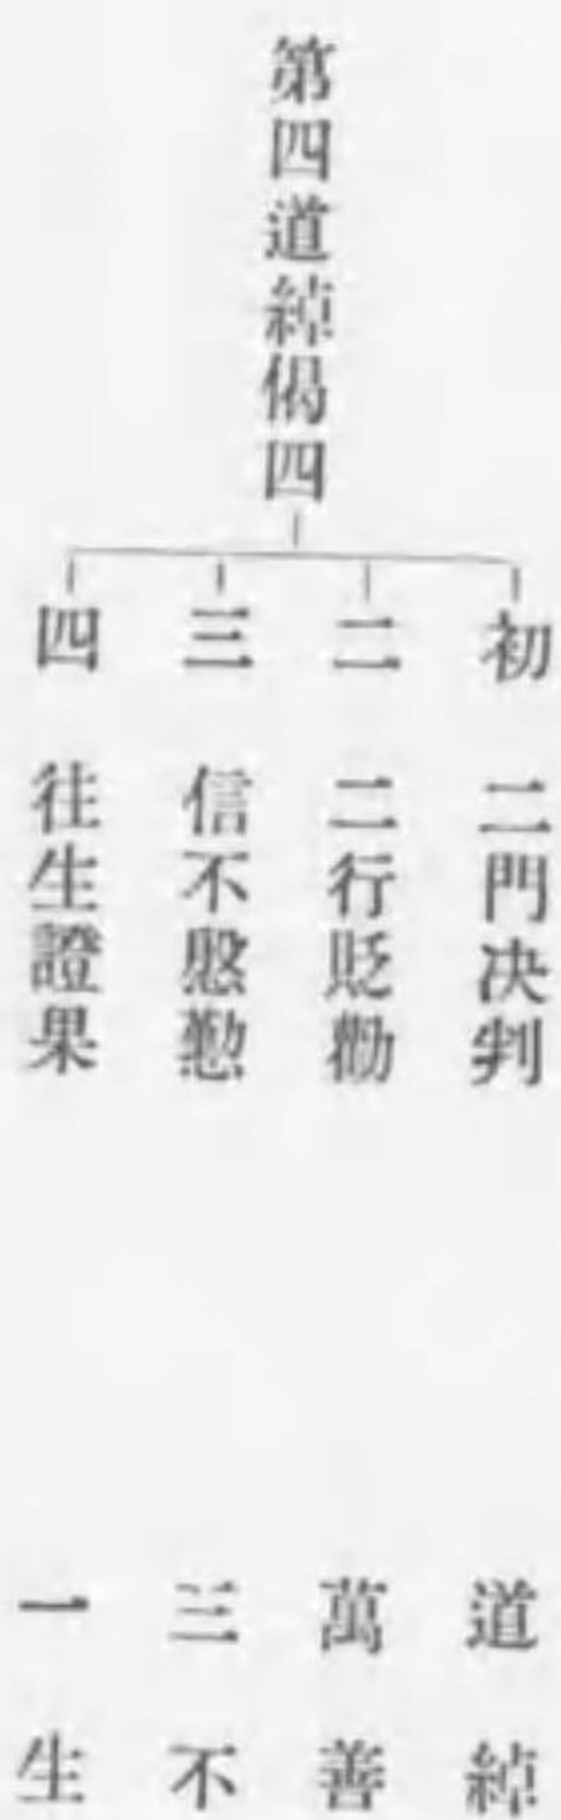 第四道綽偈四
初 二門决判 道綽
二 二行貶勸 萬善
三 信不慇懃 三不
四 往生證果 一生